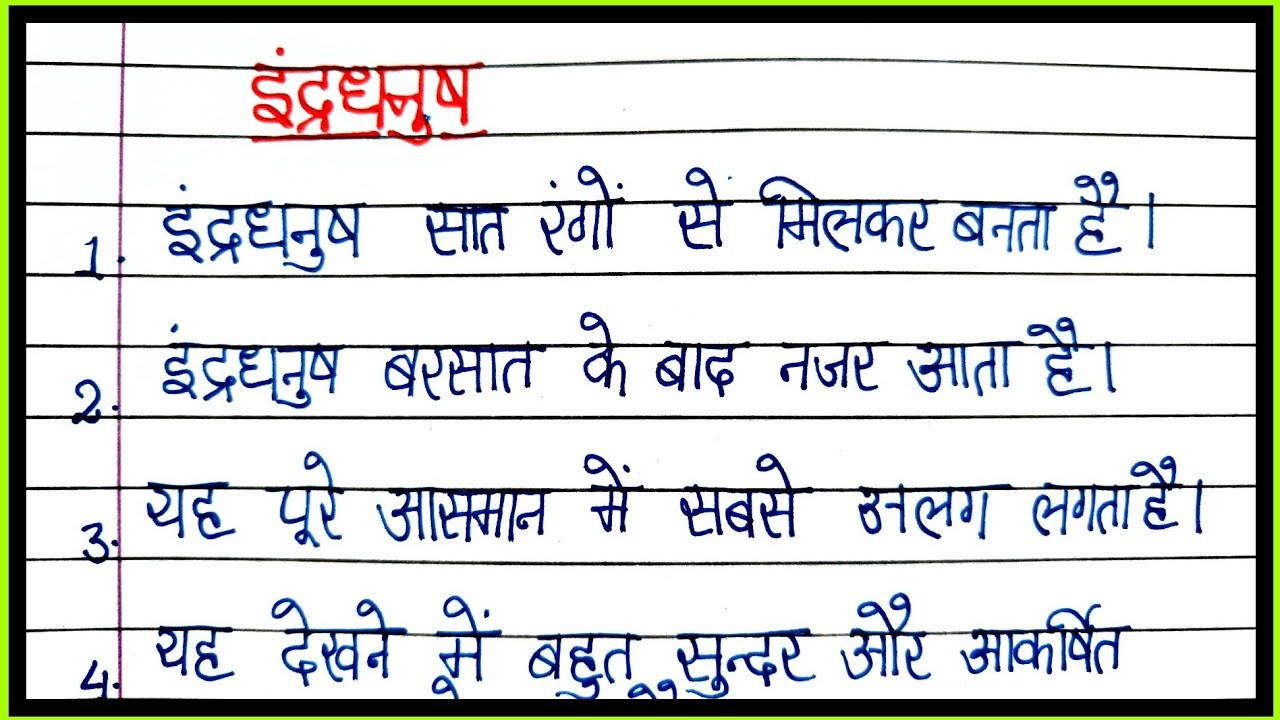 इंद्रधनुष
1. इंद्रधनुष सात रंगों से मिलकर बनता है।
2. इंद्रधनुष बरसात के बाद नजर आता है।
3. यह पूरे आसमान में सबसे अलग लगता है।
4. यह देखने में बहुत सुन्दर और आकर्षित